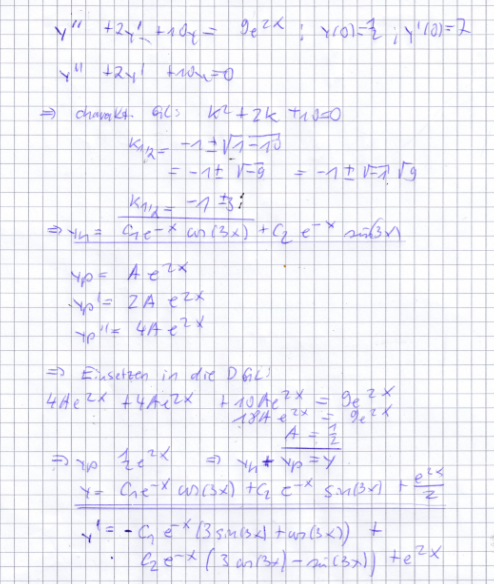 y'' + 2y' + 10y = 9e^2x ; y(0)=1/2 ; y'(0)=7
y'' + 2y' + 10y=0
⇒ charakt. GL: k² + 2k + 10=0
k1/2 = -1 ± √1-10
= -1 ± √-9 = -1 ± √-1 √9
k1/2 = -1 ± 3i
⇒ yh = C1e^-x cos(3x) + C2 e^-x sin(3x)
yp = A e^2x
yp' = 2A e^2x
yp'' = 4A e^2x
⇒ Einsetzen in die DGL:
4Ae^2x + 4Ae^2x + 10Ae^2x = 9e^2x
18A e^2x = 9e^2x
A = 1/2
⇒ yp 1/2 e^2x ⇒ yh + yp = y
y = C1e^-x cos(3x) + C2 e^-x sin(3x) + e^2x/2
y' = -C1 e^-x (3 sin(3x) + cos(3x)) +
C2 e^-x (3 cos(3x) - sin(3x)) + e^2x